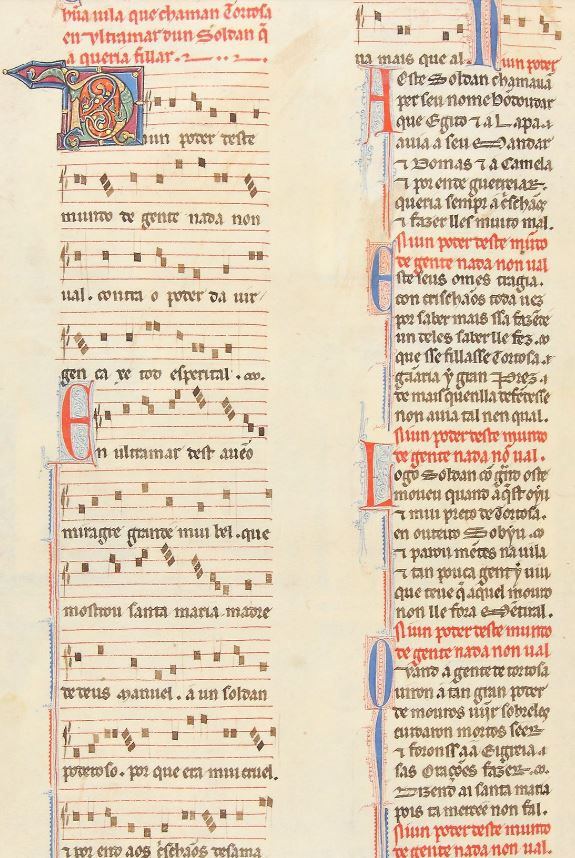 hũa uila que chaman Tortosa
en Ultramar dun Soldan q̃
a queria fillar.
Niun poder deste
mundo de gente nada non
ual. contra o poder da uir
gen ca xe tod esperital.
En ultramar dest aueo
miragre grande mui bel. que
mostrou santa maria madre
de deus Manuel. a un soldan
poderoso. por que era mui cruel.
τ por end aos crischãos desama
na mais que al. Niun poder
Aeste Soldan chamauã
per seu nome
que Egito τ a Lapa.
auia a seu Mandar
τ Domas τ a Camela
τ por ende guerreiar
queria sempr a crischãos
τ fazer lles muito mal.
Niun poder deste mũdo
de gente nada non ual
Este seus omes tragia.
con crischãos toda uez
por saber mais ssa fazẽde
un deles saber lle fez.
que sse fillasse Tortosa.
gãaria y gran Prez.
de mais quenlla defendesse
non auia tal nen qual.
Niun poder deste mundo
de gente nada nõ ual.
Logo Soldan cõ grãd oste
moueu quand aqst oyu
τ mui preto de Tortosa.
en outeiro Sobyu.
τ parou mẽtes na uila
τ tan pouca gent y uiu
que teue q̃ aquel mouro
non lle fora Mẽtiral.
Niun poder deste mundo
de gente nada non ual
Quand a gente de tortosa
uiron a tan gran poder
de mouros uĩir sobreles
cuidaron mortos seer
τ foronss aa Eigreia.
sas Orações fazer.
Dizend ai santa maria
pois ta mercee non fal.
Niun poder deste mundo
de gente nada non ual.